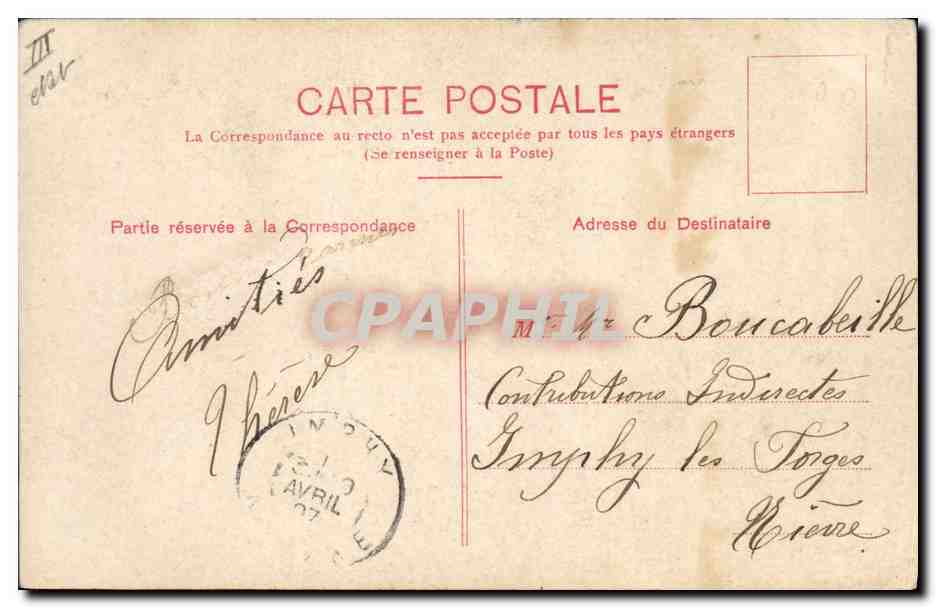 III
CARTE POSTALE
La Correspondance au recto n'est pas acceptée par tous les pays étrangers
(Se renseigner à la Poste)
Partie réservée à la Correspondance
Amitiés
Thérèse
IMPHY
AVRIL
07
Adresse du Destinataire
M Boucabeille
Contributions Indirectes
Imphy les Forges
Nièvre
CPAPHIL